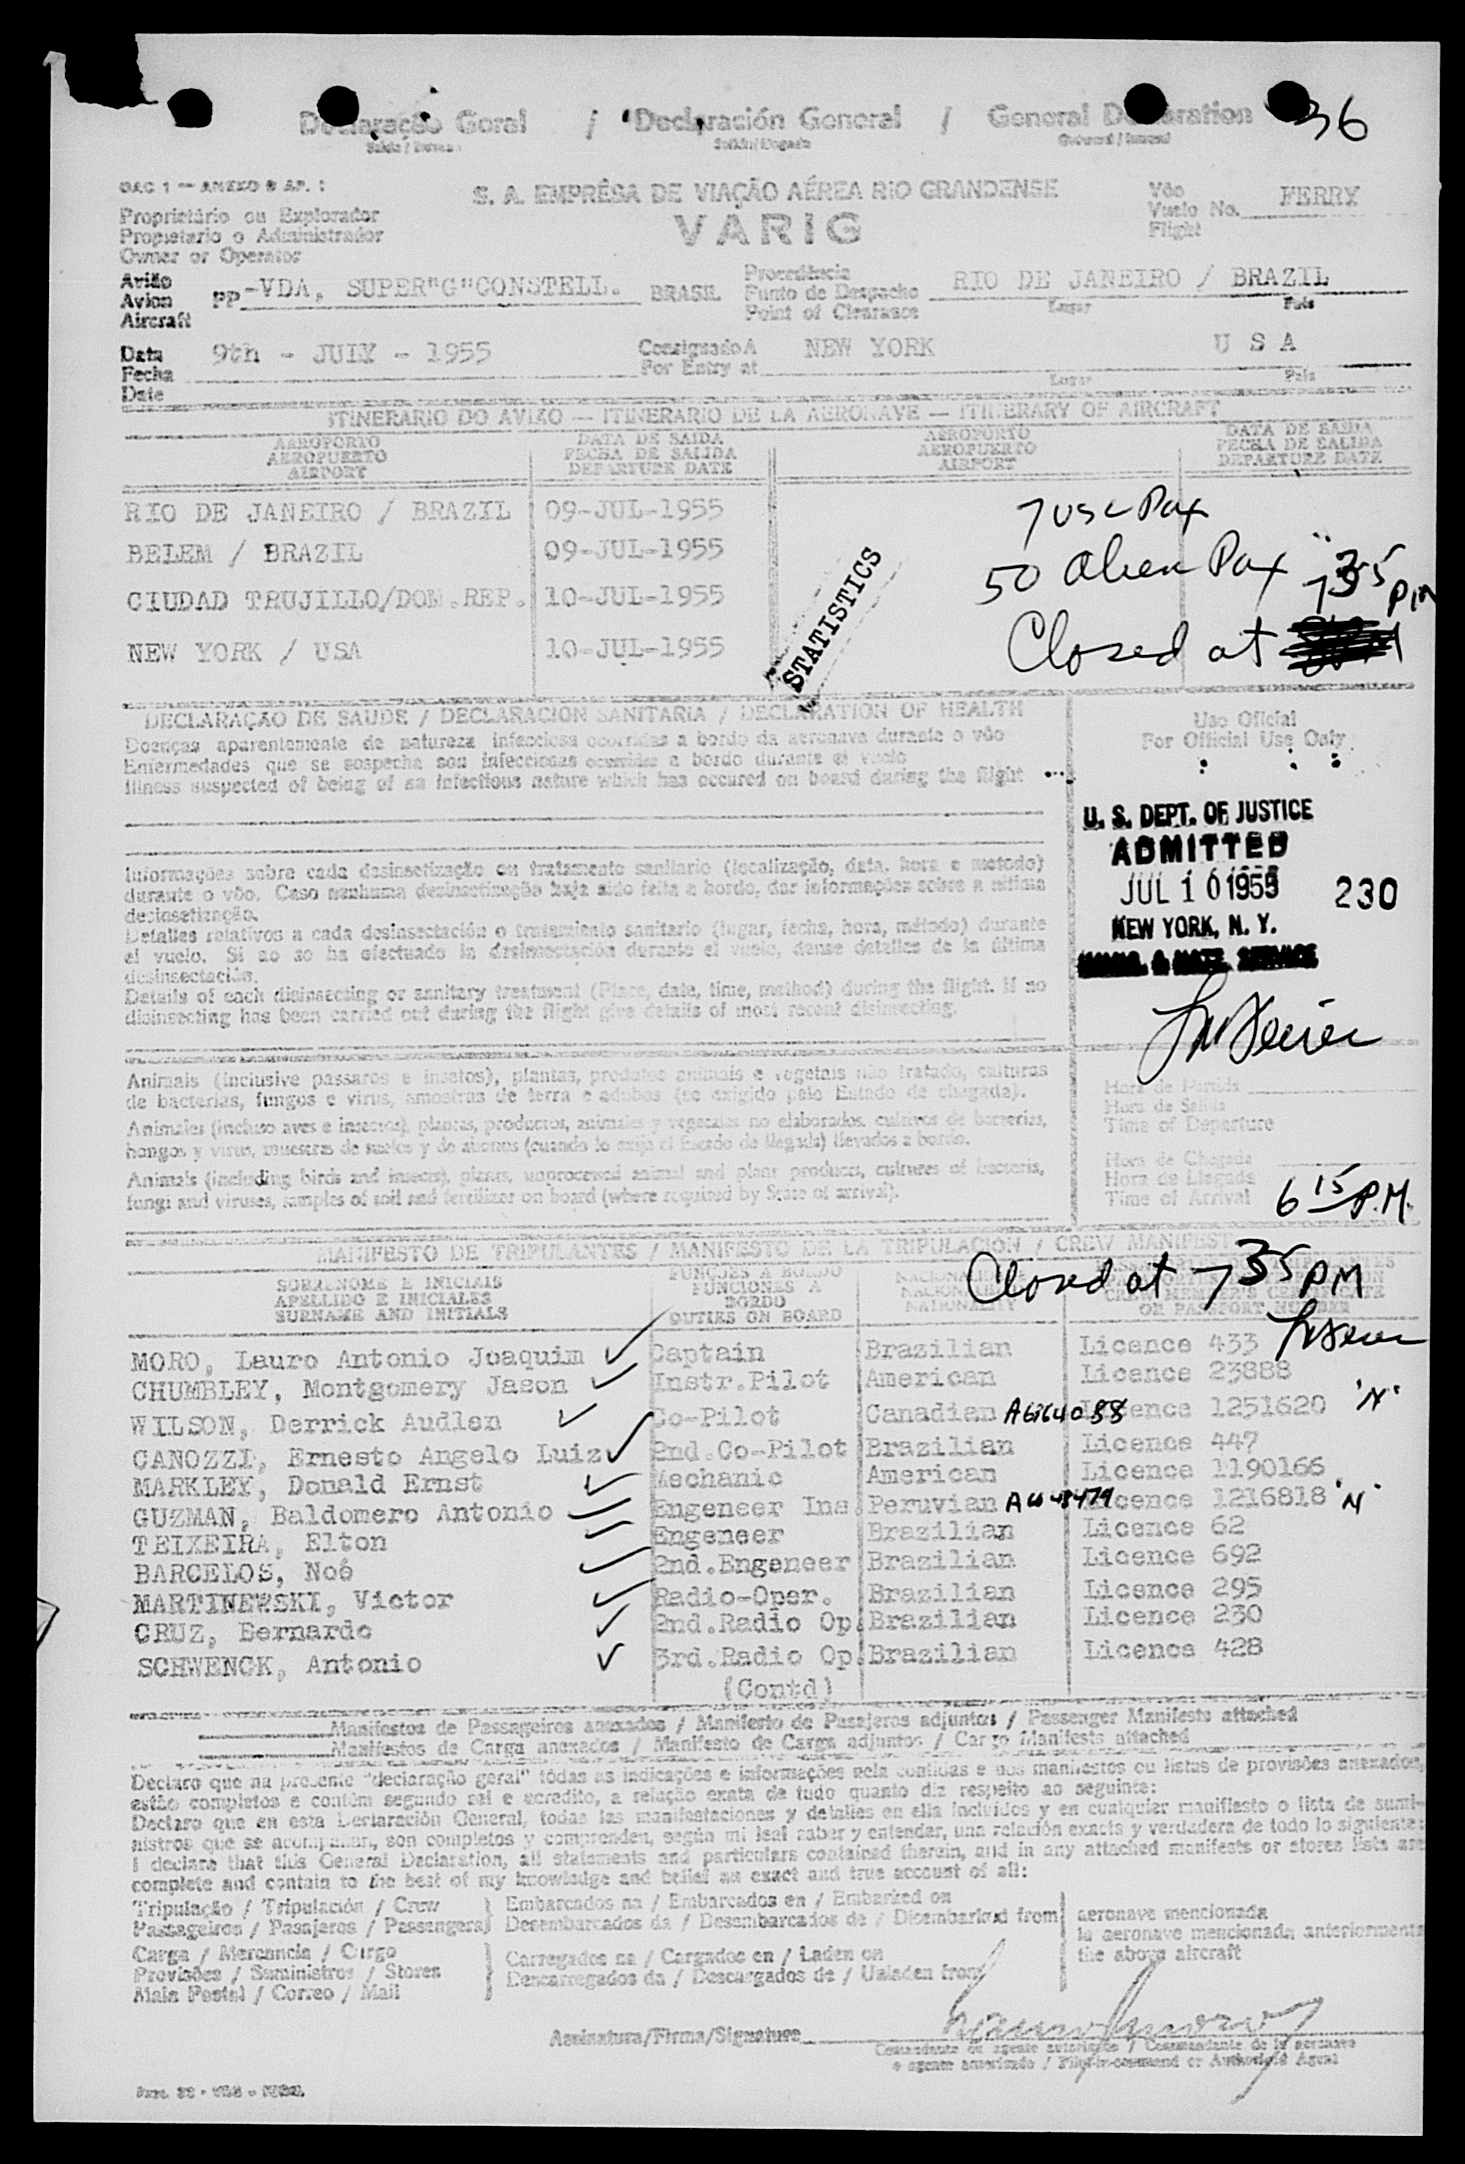 Declaração Geral / Declaración General / General Declaration
36
S. A. EMPRÊSA DE VIAÇÃO AÉREA RIO GRANDENSE
VARIG
Vôo
Vuelo No. FERRY
Flight
Proprietário ou Explorador
Propietario o Administrador
Owner or Operator
Avião
Avion
Aircraft
PP-VDA, SUPER"G"CONSTELL. BRASIL
Procedência
Punto de Despacho
Point of Clearance
RIO DE JANEIRO / BRAZIL
Lugar País
Data
Fecha
Date
9th - JULY - 1955
Consignado A
For Entry at
NEW YORK U S A
Lugar País
ITINERARIO DO AVIÃO — ITINERARIO DE LA AERONAVE — ITINERARY OF AIRCRAFT
AEROPORTO
AEROPUERTO
AIRPORT
DATA DE SAIDA
FECHA DE SALIDA
DEPARTURE DATE
AEROPORTO
AEROPUERTO
AIRPORT
DATA DE SAIDA
FECHA DE SALIDA
DEPARTURE DATE
RIO DE JANEIRO / BRAZIL 09-JUL-1955
BELEM / BRAZIL 09-JUL-1955
CIUDAD TRUJILLO/DOM.REP. 10-JUL-1955
NEW YORK / USA 10-JUL-1955
STATISTICS
7 USC Pax
50 Alien Pax
Closed at 7 35 PM
DECLARAÇÃO DE SAUDE / DECLARACION SANITARIA / DECLARATION OF HEALTH
Doenças aparentemente de natureza infecciosa ocorridas a bordo da aeronave durante o vôo
Enfermedades que se sospecha son infecciosas ocurridas a bordo durante el vuelo
Illness suspected of being of an infectious nature which has occured on board during the flight
Uso Oficial
For Official Use Only
U. S. DEPT. OF JUSTICE
ADMITTED
JUL 10 1955 230
NEW YORK, N. Y.
Informações sobre cada desinsetização ou tratamento sanitario (localização, data, hora e metodo)
durante o vôo. Caso nenhuma desinsetização haja sido feita a bordo, dar informações sobre a última
desinsetização.
Detalles relativos a cada desinsectación o tratamiento sanitario (lugar, fecha, hora, método) durante
el vuelo. Si no se ha efectuado la desinsectación durante el vuelo, dense detalles de la última
desinsectación.
Details of each disinsecting or sanitary treatment (Place, date, time, method) during the flight. If no
disinsecting has been carried out during the flight give details of most recent disinsecting.
Animais (inclusive passaros e insetos), plantas, produtos animais e vegetais não tratado, culturas
de bacterias, fungos e virus, amostras de terra e adubos (se exigido pelo Estado de chegada).
Animales (incluso aves e insectos), plantas, productos, animales y vegetales no elaborados, cultivos de bacterias,
hongos y virus, muestras de suelos y de abonos (cuando lo exija el Estado de llegada) llevados a bordo.
Animals (including birds and insects), plants, unprocessed animal and plant products, cultures of bacteria,
fungi and viruses, samples of soil and fertilizer on board (where required by State of arrival).
Hora de Partida
Hora de Salida
Time of Departure
Hora de Chegada
Hora de Llegada
Time of Arrival
6 15 P.M.
MANIFESTO DE TRIPULANTES / MANIFESTO DE LA TRIPULACION / CREW MANIFEST
Closed at 7 35 PM
SOBRENOME E INICIAIS
APELLIDO E INICIALES
SURNAME AND INITIALS
FUNÇÕES A BORDO
FUNCIONES A
BORDO
DUTIES ON BOARD
NATIONALITY
CREW MEMBER'S CERTIFICATE
OR PASSPORT NUMBER
MORO, Lauro Antonio Joaquim Captain Brazilian Licence 433
CHUMBLEY, Montgomery Jason Instr.Pilot American Licence 23888
WILSON, Derrick Audlen Co-Pilot Canadian Licence 1251620 "N"
CANOZZI, Ernesto Angelo Luiz 2nd.Co-Pilot Brazilian Licence 447
MARKLEY, Donald Ernst Mechanic American Licence 1190166
GUZMAN, Baldomero Antonio Engeneer Ins. Peruvian Licence 1216818 "N"
TEIXEIRA, Elton Engeneer Brazilian Licence 62
BARCELOS, Noé 2nd.Engeneer Brazilian Licence 692
MARTINEWSKI, Victor Radio-Oper. Brazilian Licence 295
CRUZ, Bernardo 2nd.Radio Op. Brazilian Licence 230
SCHWENCK, Antonio 3rd.Radio Op. Brazilian Licence 428
(Contd)
Manifestos de Passageiros anexados / Manifiesto de Pasajeros adjuntos / Passenger Manifests attached
Manifestos de Carga anexados / Manifiesto de Carga adjuntos / Cargo Manifests attached
Declaro que na presente "declaração geral" tôdas as indicações e informações nela contidas e nos manifestos ou listas de provisões anexados,
estão completos e contêm segundo sei e acredito, a relação exata de tudo quanto diz respeito ao seguinte:
Declaro que en esta Declaración General, todas las manifestaciones y detalles en ella incluidos y en cualquier manifiesto o lista de sumi-
nistros que se acompañan, son completos y comprenden, según mi leal saber y entender, una relación exacta y verdadera de todo lo siguiente:
I declare that this General Declaration, all statements and particulars contained therein, and in any attached manifests or stores lists are
complete and contain to the best of my knowledge and belief an exact and true account of all:
Tripulação / Tripulación / Crew
Passageiros / Pasajeros / Passengers
Embarcados na / Embarcados en / Embarked on
Desembarcados da / Desembarcados de / Disembarked from
aeronave mencionada
la aeronave mencionada anteriormente
the above aircraft
Carga / Mercancia / Cargo
Provisões / Suministros / Stores
Mala Postal / Correo / Mail
Carregados na / Cargados en / Laden on
Descarregados da / Descargados de / Unladen from
Assinatura/Firma/Signature
Comandante ou agente autorizado / Commandante de la aeronave
o agente autorizado / Pilot-in-command or Authorized Agent